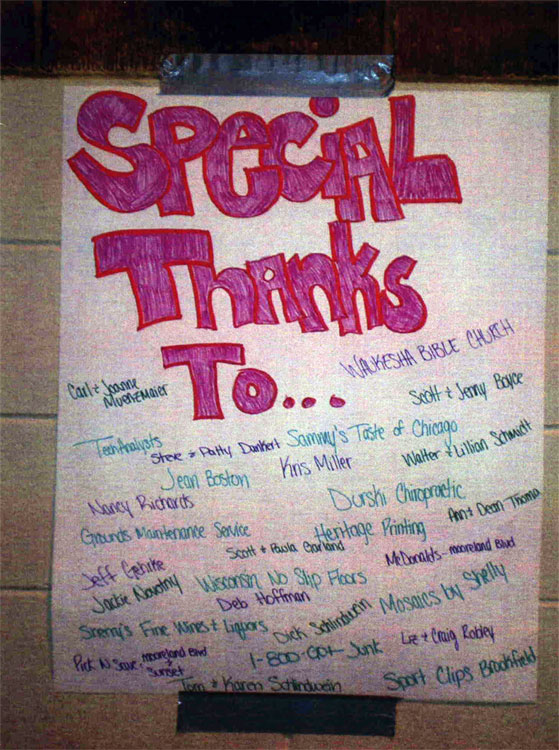 SPeCiAL
THANKS
To...
WAUKESHA BIBLE CHURCH
Carl + Joanne
Scott + Jenny Boyce
TechAnalysts
Steve + Patty Dankert
Sammy's Taste of Chicago
Jean Boston
Kris Miller
Walter + Lillian Schmidt
Nancy Richards
Durski Chiropractic
Ann + Dean Thoma
Grounds Maintenance Service
Heritage Printing
Scott + Paula Garland
McDonalds - mooreland Blvd
Jeff
Jackie Novotny
Wisconsin No Slip Floors
Deb Hoffman
Mosaics by Shelly
Fine Wines + Liquors
Dick Schlindwein
Liz + Craig Robley
Pick N Save mooreland Blvd
+ Sunset
1-800-Got-Junk
Tom + Karen Schlindwein
Sport Clips Brookfield